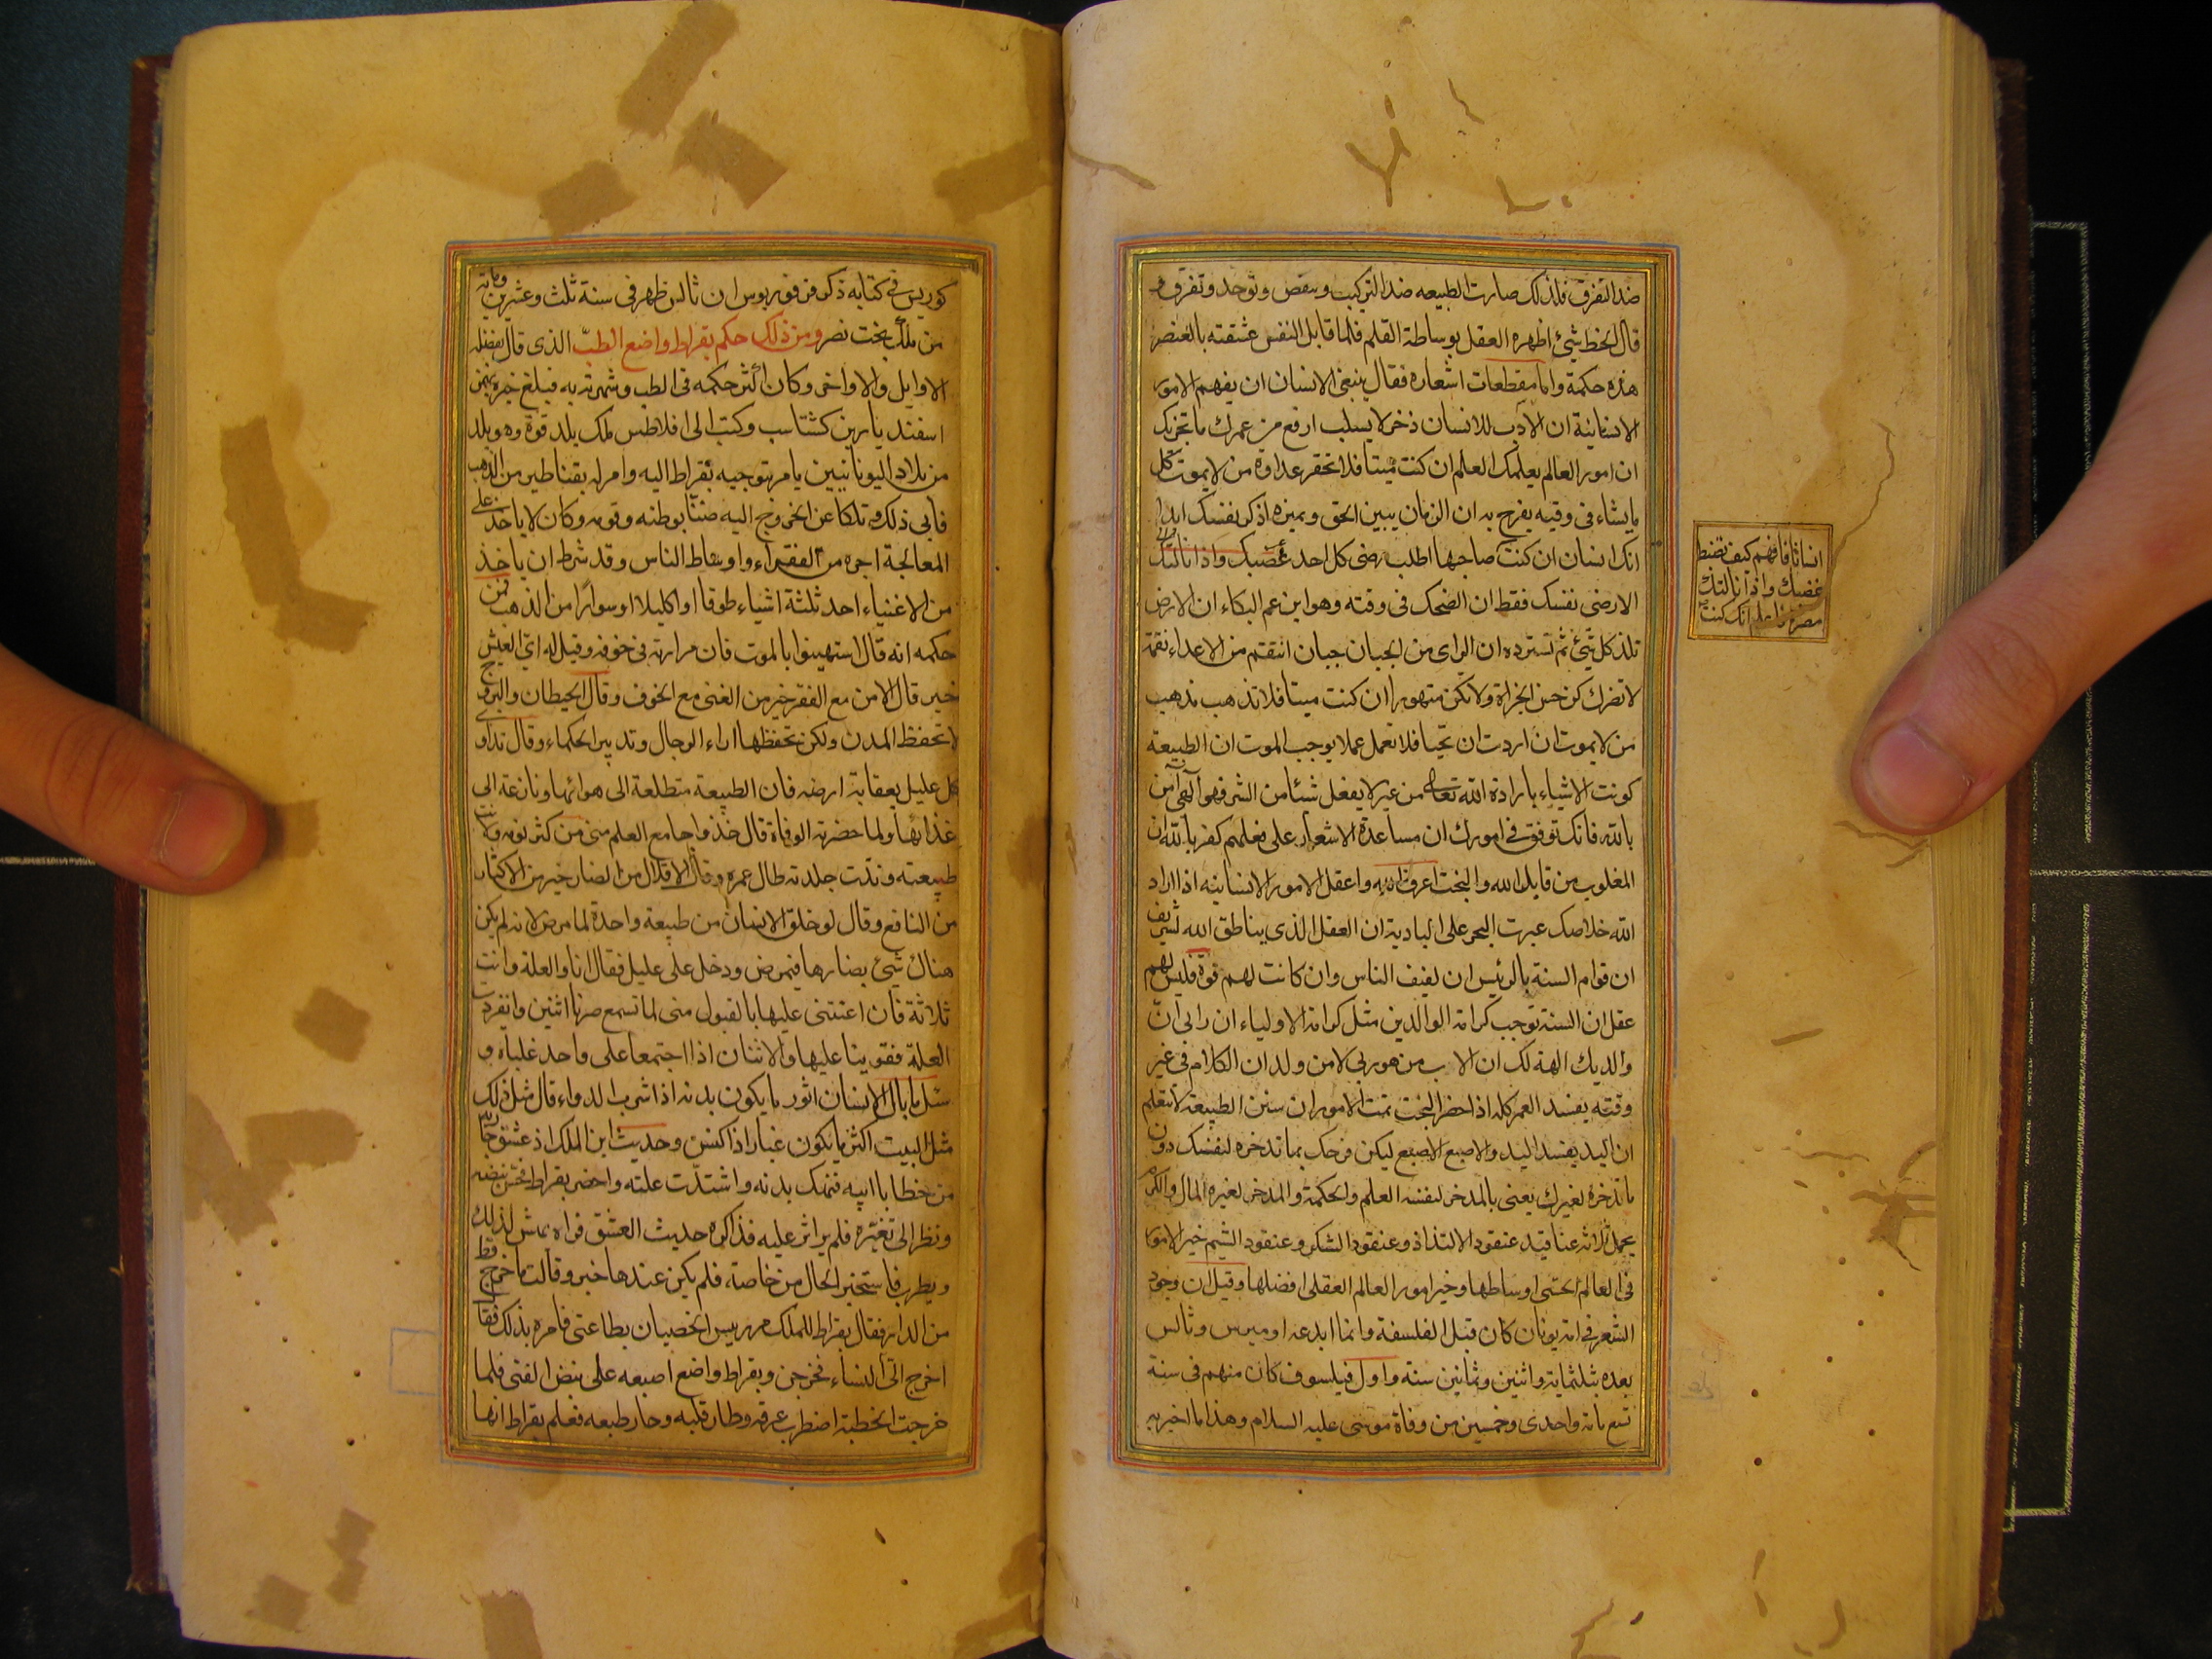 ضد التفرق فلذلك صارت الطبيعه ضد التركيب وينقص وتوحد وتفرق و
قال الخط شيئ اظهره العقل بوساطة القلم فلما قابل النفس عشقته بالعنصر
هذه حكمة واما مقطعات اشعاره فقال ينبغى الانسان ان يفهم الامور
الانسانية ان الادب للانسان ذخر لا يسلب ارفع من عمرك ما يحزنك
ان امور العالم يعلمك العلم ان كنت ميتا فلا تحقر عداوة من لا يموت كل
ما يشاء فى وقته يفرح به ان الزمان يبين الحق وينيره اذكر نفسك ابدا
انك انسان ان كنت صاحبها اطلب رضى كل احد غضبك واذا نالتك
الارضى نفسك فقط ان الضحك فى وقته وهو ابن عم البكاء ان الارض
تلد كل شيئ ثم تسترده ان الراى من الجبان جبان انتقم من الاعداء نقمة
لا تضرك كن حسن الجراة ولا تكن متهورا ان كنت ميتا فلا تذهب مذهب
من لا يموت ان اردت ان تحيا فلا تعمل عملا يوجب الموت ان الطبيعة
كونت الاشياء بارادة الله تعالى من غير لا يفعل شيئا من الشر فهو آلهى آمن
بالله فانك توفق فى امورك ان مساعدة الاشعار على فعلهم كفر بالله ان
المغلوب من قابل الله والبخت اعرف الله واعقل الامور الانسانية اذا اراد
الله خلاصك عبرت البحر على البادية ان العقل الذى يناطق الله لشريف
ان قوام السنة بالرئيس ان لفيف الناس وان كانت لهم قوة فليس لهم
عقل ان السنة توجب كرامة الوالدين مثل كرامة الاولياء ان رايى ان
والديك الهة لك ان الاب من هو ربى لا من ولد ان الكلام فى غير
وقته يفسد العمر كله اذا حضر البخت تمت الامور ان سنن الطبيعة لا تتعلم
ان اليد يفسد اليد والاصبع الاصبع ليكن فرحك بما تدخره لنفسك دون
ما تدخره لغيرك يعنى بالمدخر لنفسه العلم والحكمة والمدخر لغيره المال والكرم
يحمل ثلاثة عناقيد عنقود الالتذاذ وعنقود الشكر وعنقود الشيم خير الامور
فى العالم الحسى اوساطها وخير امور العالم العقلى افضلها وقيل ان وجود
الشعر فى امة يونان كان قبل الفلسفة وانما ابدعه اوميرس وثالس
بعده بثلثماية واثنين وثمانين سنة واول فيلسوف كان منهم فى سنة
تسع ماية واحدى وخمسين من وفاة موسى عليه السلام وهذا ما اخبر به
انسانا فافهم كيف تضبط
غضبك واذا نالتك
مضرة فاعلم انك كنت
كوريس فى كتابه ذكر فرفوريوس ان ثالس ظهر فى سنة ثلث وعشرين وماية
من ملك بخت نصر ومن ذلك حكم بقراط واضع الطب الذى قال بفضله
الاوايل والاواخر وكان اكثر حكمه فى الطب وشهرته به فبلغ خبره بهمن
اسفنديار بن كشتاسب وكتب الى افلاطس ملك بلد قوة وهو بلد
من بلاد اليونانيين يامر بتوجيه بقراط اليه وامر له بقناطير من الذهب
فابى ذلك وتلكا عن الخروج اليه ضنا بوطنه وقومه وكان لا ياخذ على
المعالجة اجره من الفقراء واوساط الناس وقد شرط ان ياخذ
من الاغنياء احد ثلثة اشياء طوقا او اكليلا او سوارا من الذهب فمن
حكمه انه قال استهينوا بالموت فان مرارته فى خوفه وقيل له اى العيش
خير قال الامن مع الفقر خير من الغنى مع الخوف وقال الحيطان والبروج
لا تحفظ المدن ولكن تحفظها اراء الرجال وتدبير الحكماء وقال تداوى
كل عليل بعقاقير ارضه فان الطبيعة متطلعة الى هوائها ونازعة الى
غذائها ولما حضرته الوفاة قال خذوا جامع العلم منى من كثر نومه ولانت
طبيعته ونديت جلدته طال عمره وقال الاقلال من الضار خير من الاكثار
من النافع وقال لو خلق الانسان من طبيعة واحدة لما مرض لانه لم يكن
هناك شيئ يضارها فيمرض ودخل على عليل فقال انا والعلة وانت
ثلاثة فان اعنتنى عليها بالقبول منى لما تسمع صرنا اثنين وانفردت
العلة فقوينا عليها والاثنان اذا اجتمعا على واحد غلباه و
سئل ما بال الانسان اثور ما يكون بدنه اذا شرب الدواء قال مثل ذلك
مثل البيت اكثر ما يكون غبارا اذا كنس وحديث ابن الملك اذ عشق جارية
من خطايا ابيه فنهك بدنه واشتدت علته واحضر بقراط فجس نبضه
ونظر الى تفسرته فلم ير اثر عليه فذاكره حديث العشق فراه يهش لذلك
ويطرب فاستخبر الحال من خاصته فلم يكن عندها خبر وقالت ما خرج قط
من الدار فقال بقراط للملك مر رييس الخصيان بطاعتى فامره بذلك فقال
اخرج الى النساء فخرجن وبقراط واضع اصبعه على نبض الفتى فلما
خرجت الخطية اضطرب عرقه وطار قلبه وحار طبعه فعلم بقراط انها